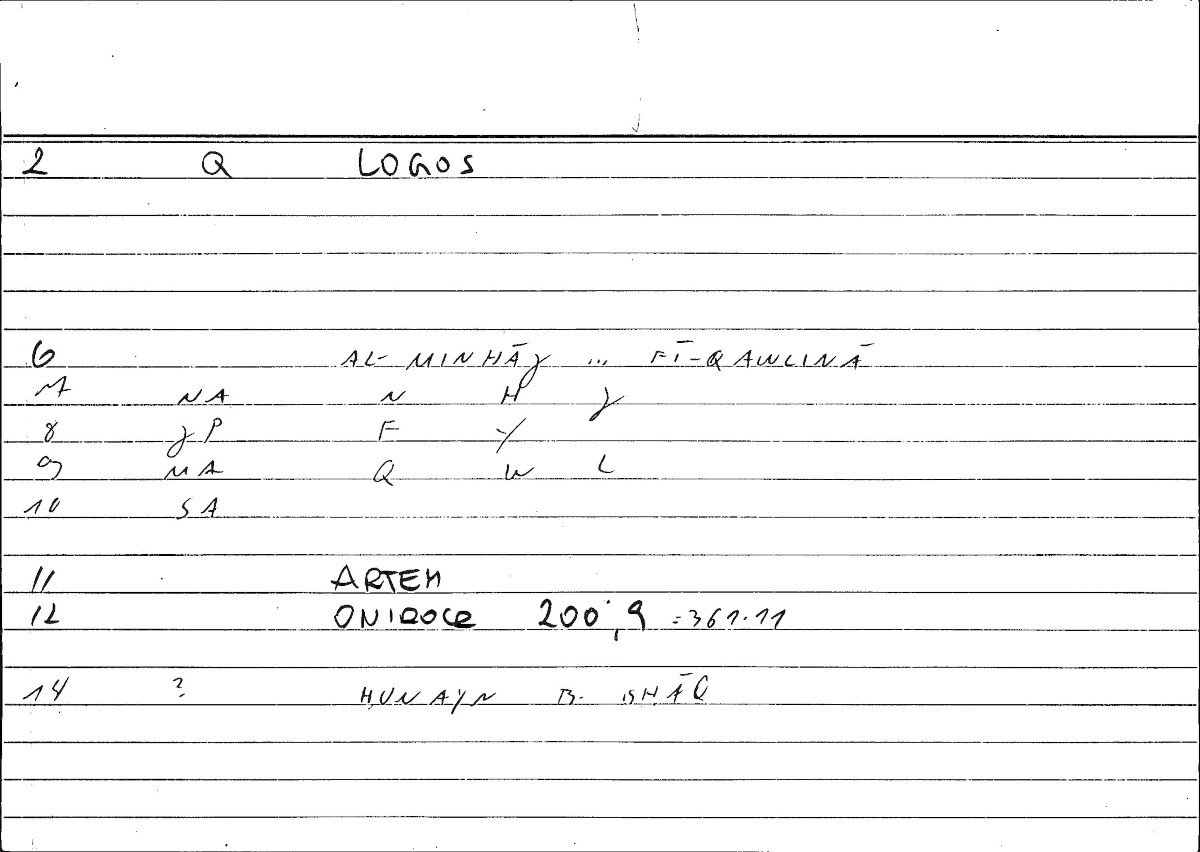 2 Q LOGOS
6 AL-MINHĀJ ... FĪ-QAWLINĀ
7 NA N H J
8 JP F Y
9 MA Q W L
10 SA
11 ARTEM
12 ONIROCR 200,9 =361.11
14 ? ḤUNAYN B. ISḤĀQ